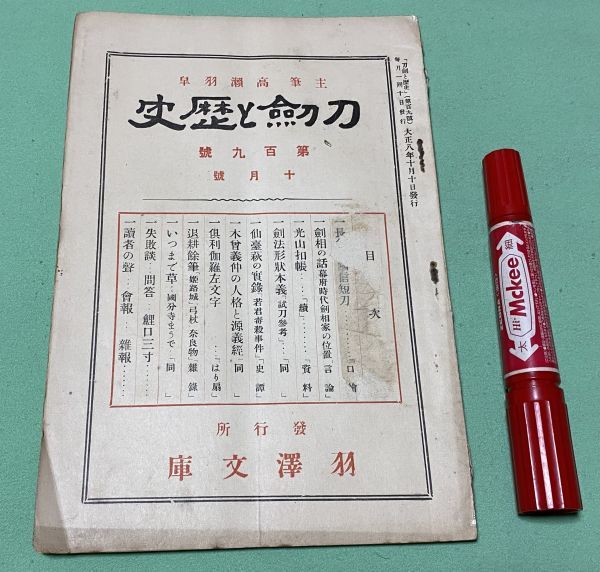 「刀劍と歴史」(第百九號)
每月一回十日發行
大正八年十月十日發行
主筆高瀬羽皐
刀劍と歴史
第百九號
十月號
目次
一長 信短刀……「口繪」
一劍相の話 幕府時代劍相家の位置「言論」
一光山扣帳…「續」……「資料」
一劍法形狀本義「試刀參考」…「同」
一仙臺萩の實錄 若君毒殺事件「史譚」
一木曾義仲の人格と源義經「同」
一俱利伽羅左文字…「はり扇」
一退耕餘筆「姬路城」弓杖、奈良物「雜錄」
一いつまで草…國分寺まうで「同」
一失敗談…問答…鯉口三寸……
一讀者の聲…會報…雜報……
發行所
羽澤文庫
細
Hi-Mckee
太